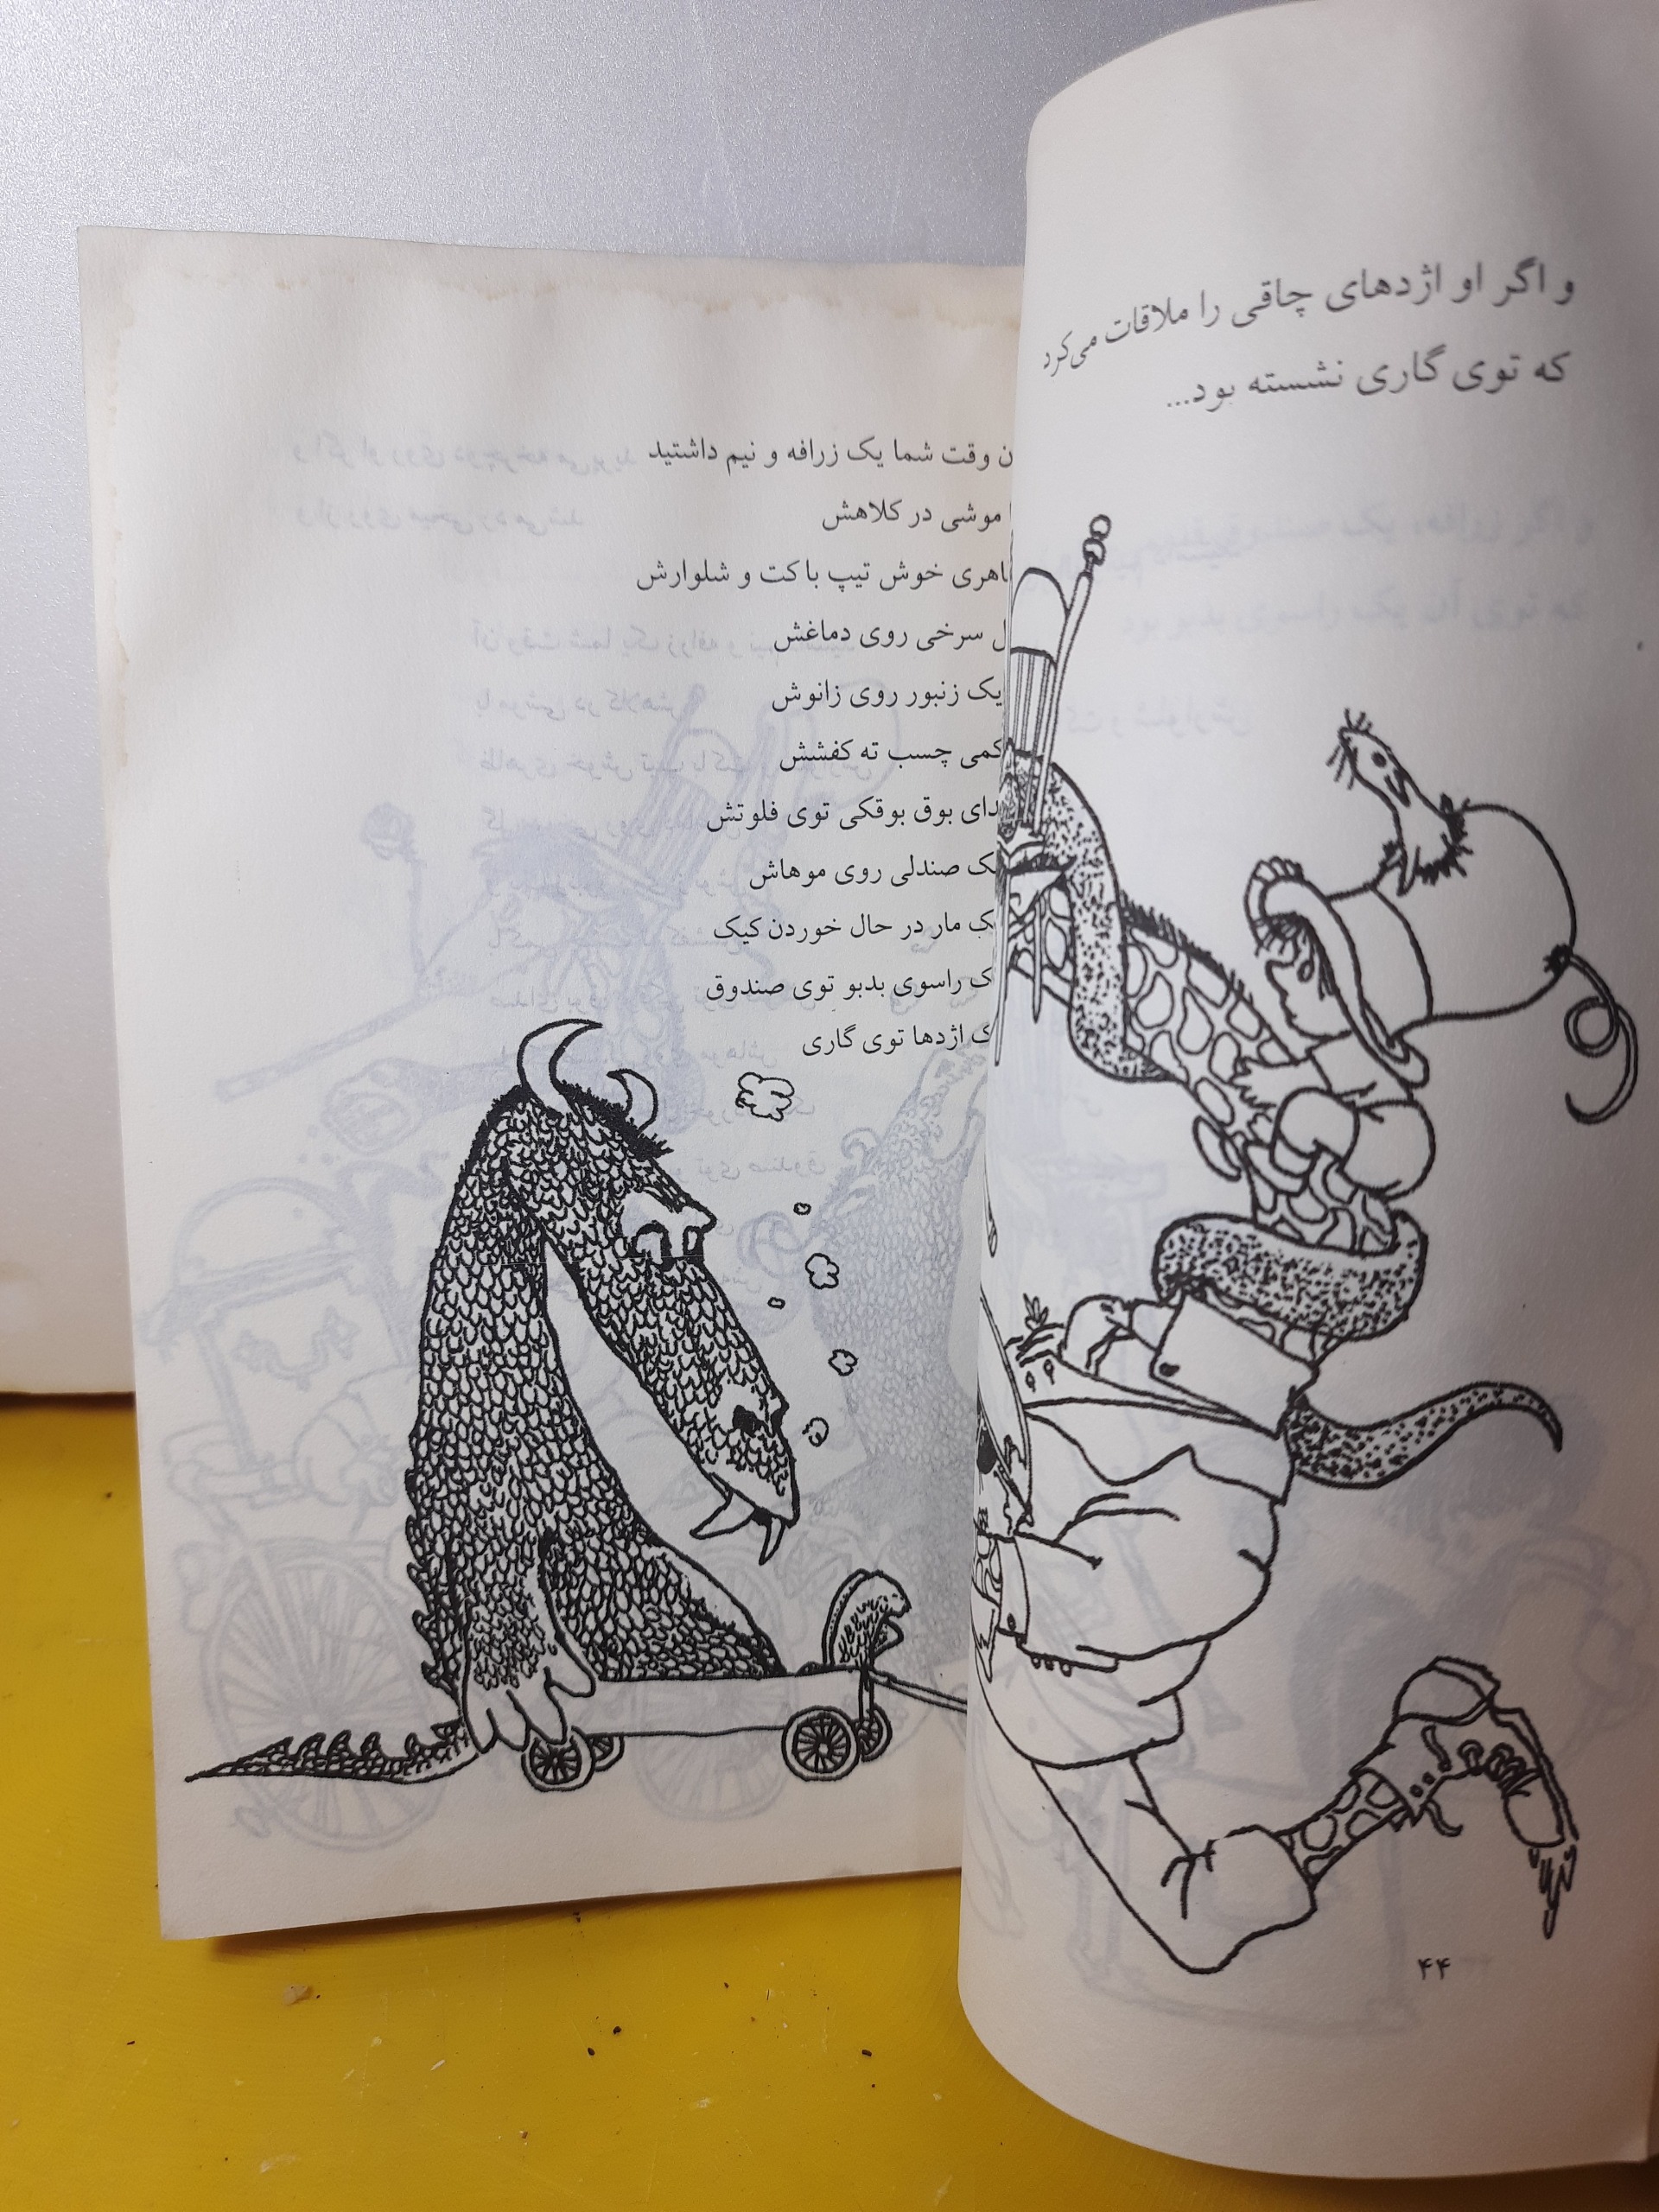 و اگر او اژدهای چاقی را ملاقات می‌کرد
که توی گاری نشسته بود...
۴۴
وقت شما یک زرافه و نیم داشتید
موشی در کلاهش
خوش تیپ با کت و شلوارش
سرخی روی دماغش
یک زنبور روی زانوش
کمی چسب ته کفشش
بوق بوقکی توی فلوتش
صندلی روی موهاش
مار در حال خوردن کیک
راسوی بدبو توی صندوق
اژدها توی گاری